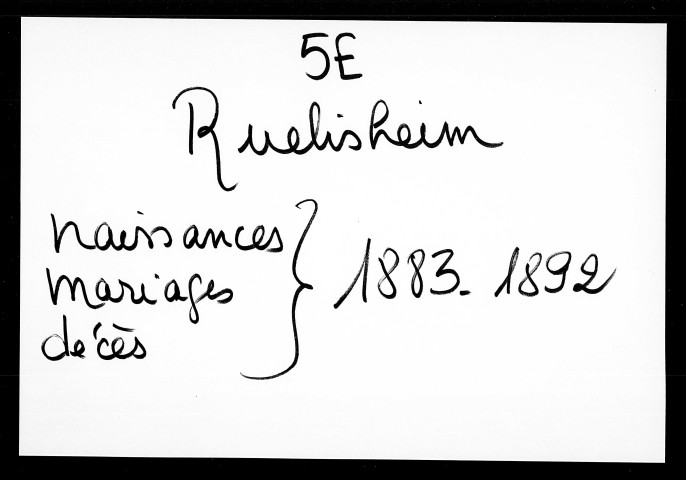 5E
Ruelisheim
naissances
mariages } 1883-1892
décès